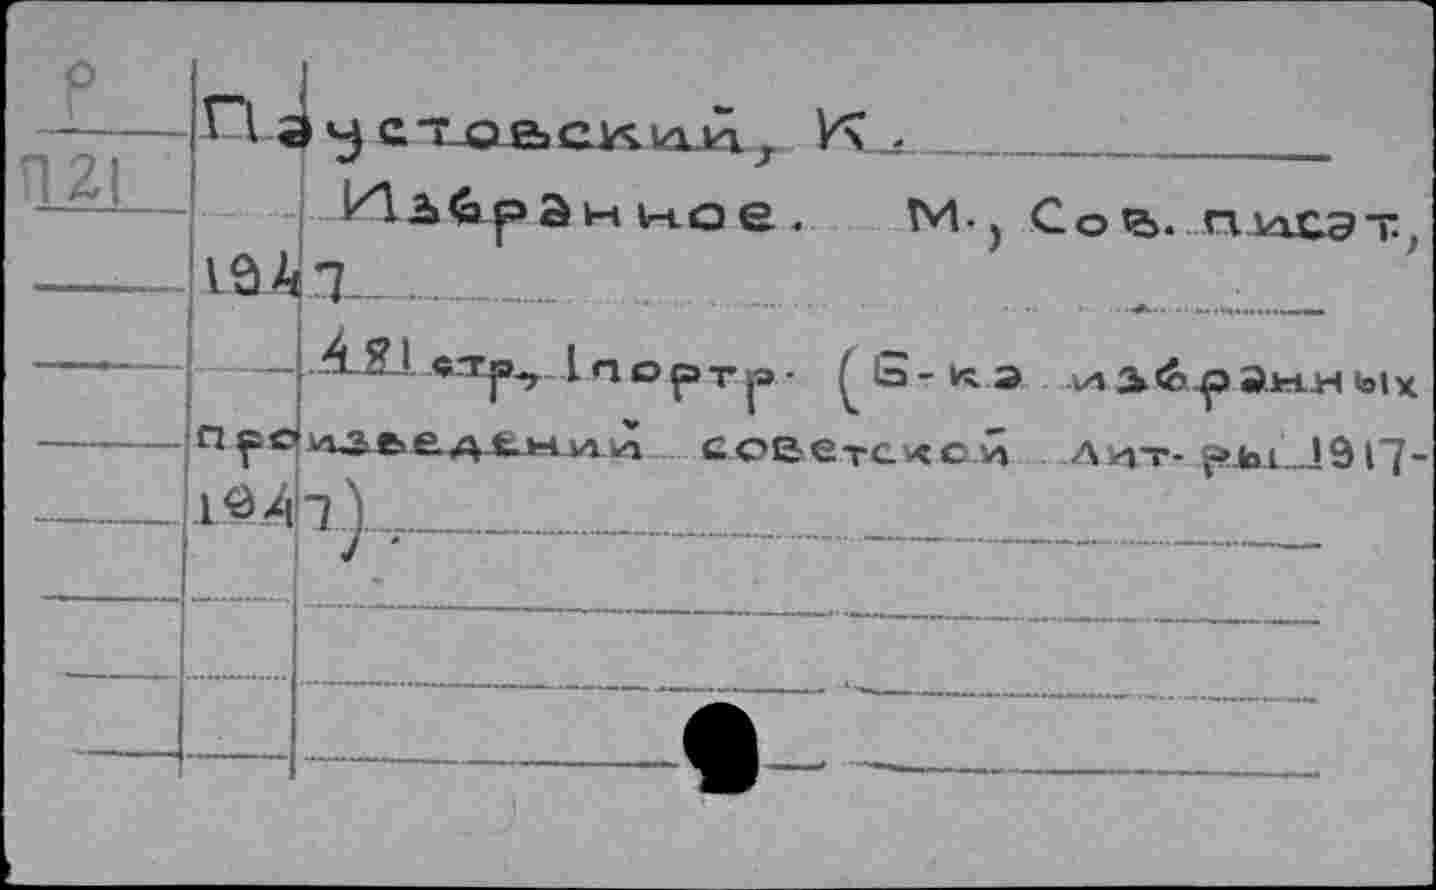 Р
П21
Паустовский, К.
Избранное. М., Сов. писат.,
1947
481 стр., 1 портр. (Б-ка избранных
произведений советской лит-ры 1917-
1947).